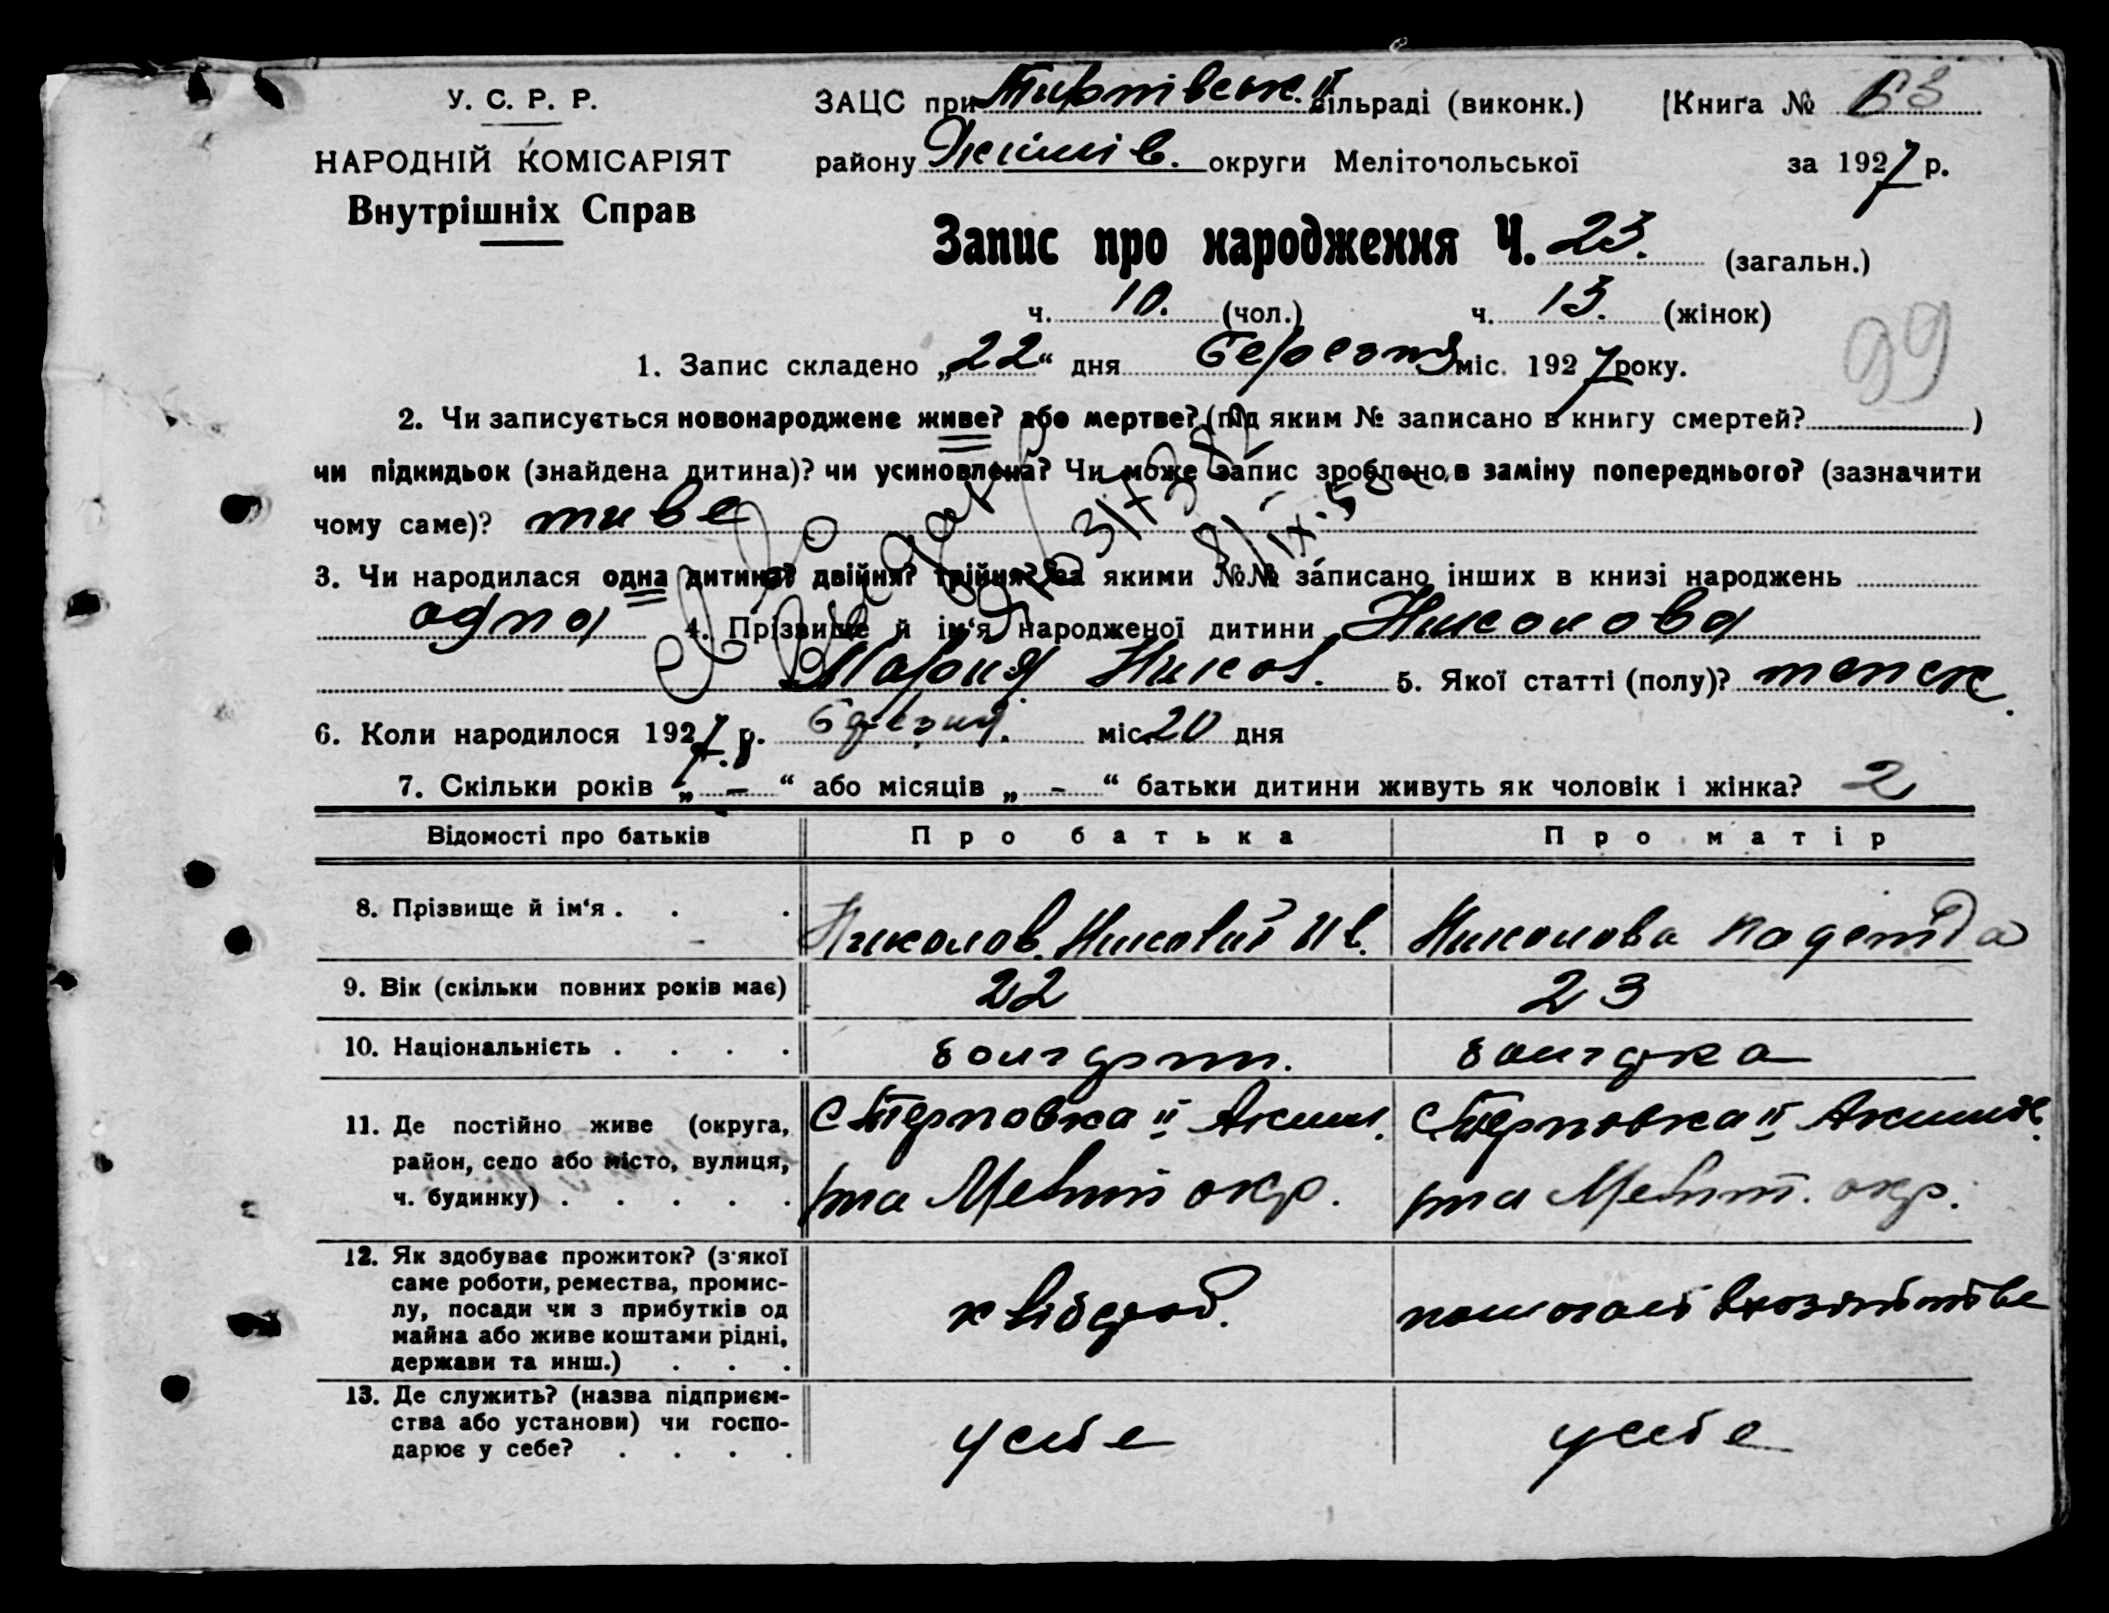 У. С. Р. Р.
НАРОДНІЙ КОМІСАРІЯТ
Внутрішніх Справ
ЗАЦС при сільраді (виконк.) Книга №
району округи Мелітопольської за 1927 р.
Запис про народження Ч. 23. (загальн.)
ч. 10. (чол.) ч. 13. (жінок)
99
1. Запис складено „22“ дня березня міс. 1927 року.
2. Чи записується новонароджене живе? або мертве? (під яким № записано в книгу смертей? )
чи підкидьок (знайдена дитина)? чи усиновлена? Чи може запис зроблено в заміну попереднього? (зазначити
чому саме)? живе
3. Чи народилася одна дитина? двійня? трійня? за якими №№ записано інших в книзі народжень
одна 4. Прізвище й ім‘я народженої дитини Николова
Мария Никол. 5. Якої статті (полу)? женск.
6. Коли народилося 1927 р. березня міс. 20 дня
7. Скільки років „ - “ або місяців „ - “ батьки дитини живуть як чоловік і жінка? 2
Відомості про батьків Про батька Про матір
8. Прізвище й ім‘я . . . Николов Николай Ив. Николова Надежда
9. Вік (скільки повних років має) 22 23
10. Національність . . . . болгарка
11. Де постійно живе (округа, район, село або місто, вулиця, ч. будинку) . . . . .
с Терновка II Аким.
р-на Меліт окр.
с Терновка II Акимов.
р-на Меліт. окр.
12. Як здобуває прожиток? (з якої
саме роботи, ремества, промис-
лу, посади чи з прибутків од
майна або живе коштами рідні,
держави та инш.) . . .
хлібороб.
13. Де служить? (назва підприєм-
ства або установи) чи госпо-
дарює у себе? . . . .
у себе
у себе